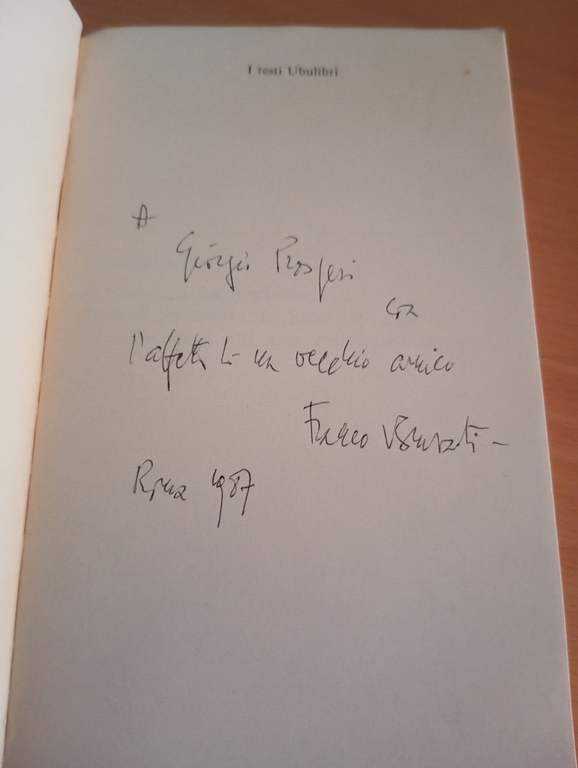 I testi Ubulibri
A
Giorgio Prosperi
con
l'affetto di un vecchio amico
Franco Brusati
Roma 1987